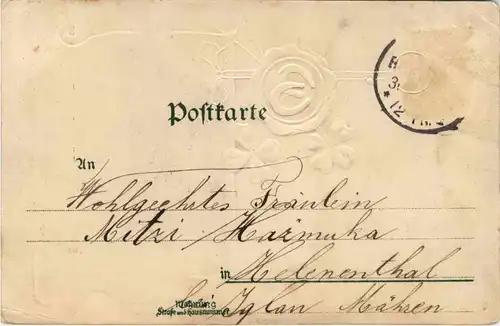 Postkarte
An
Wohlgeehrtes Fräulein
Mitzi Hažmuka
in Helenenthal
Wohnung
Straße und Hausnummer
b. Iglau Mähren